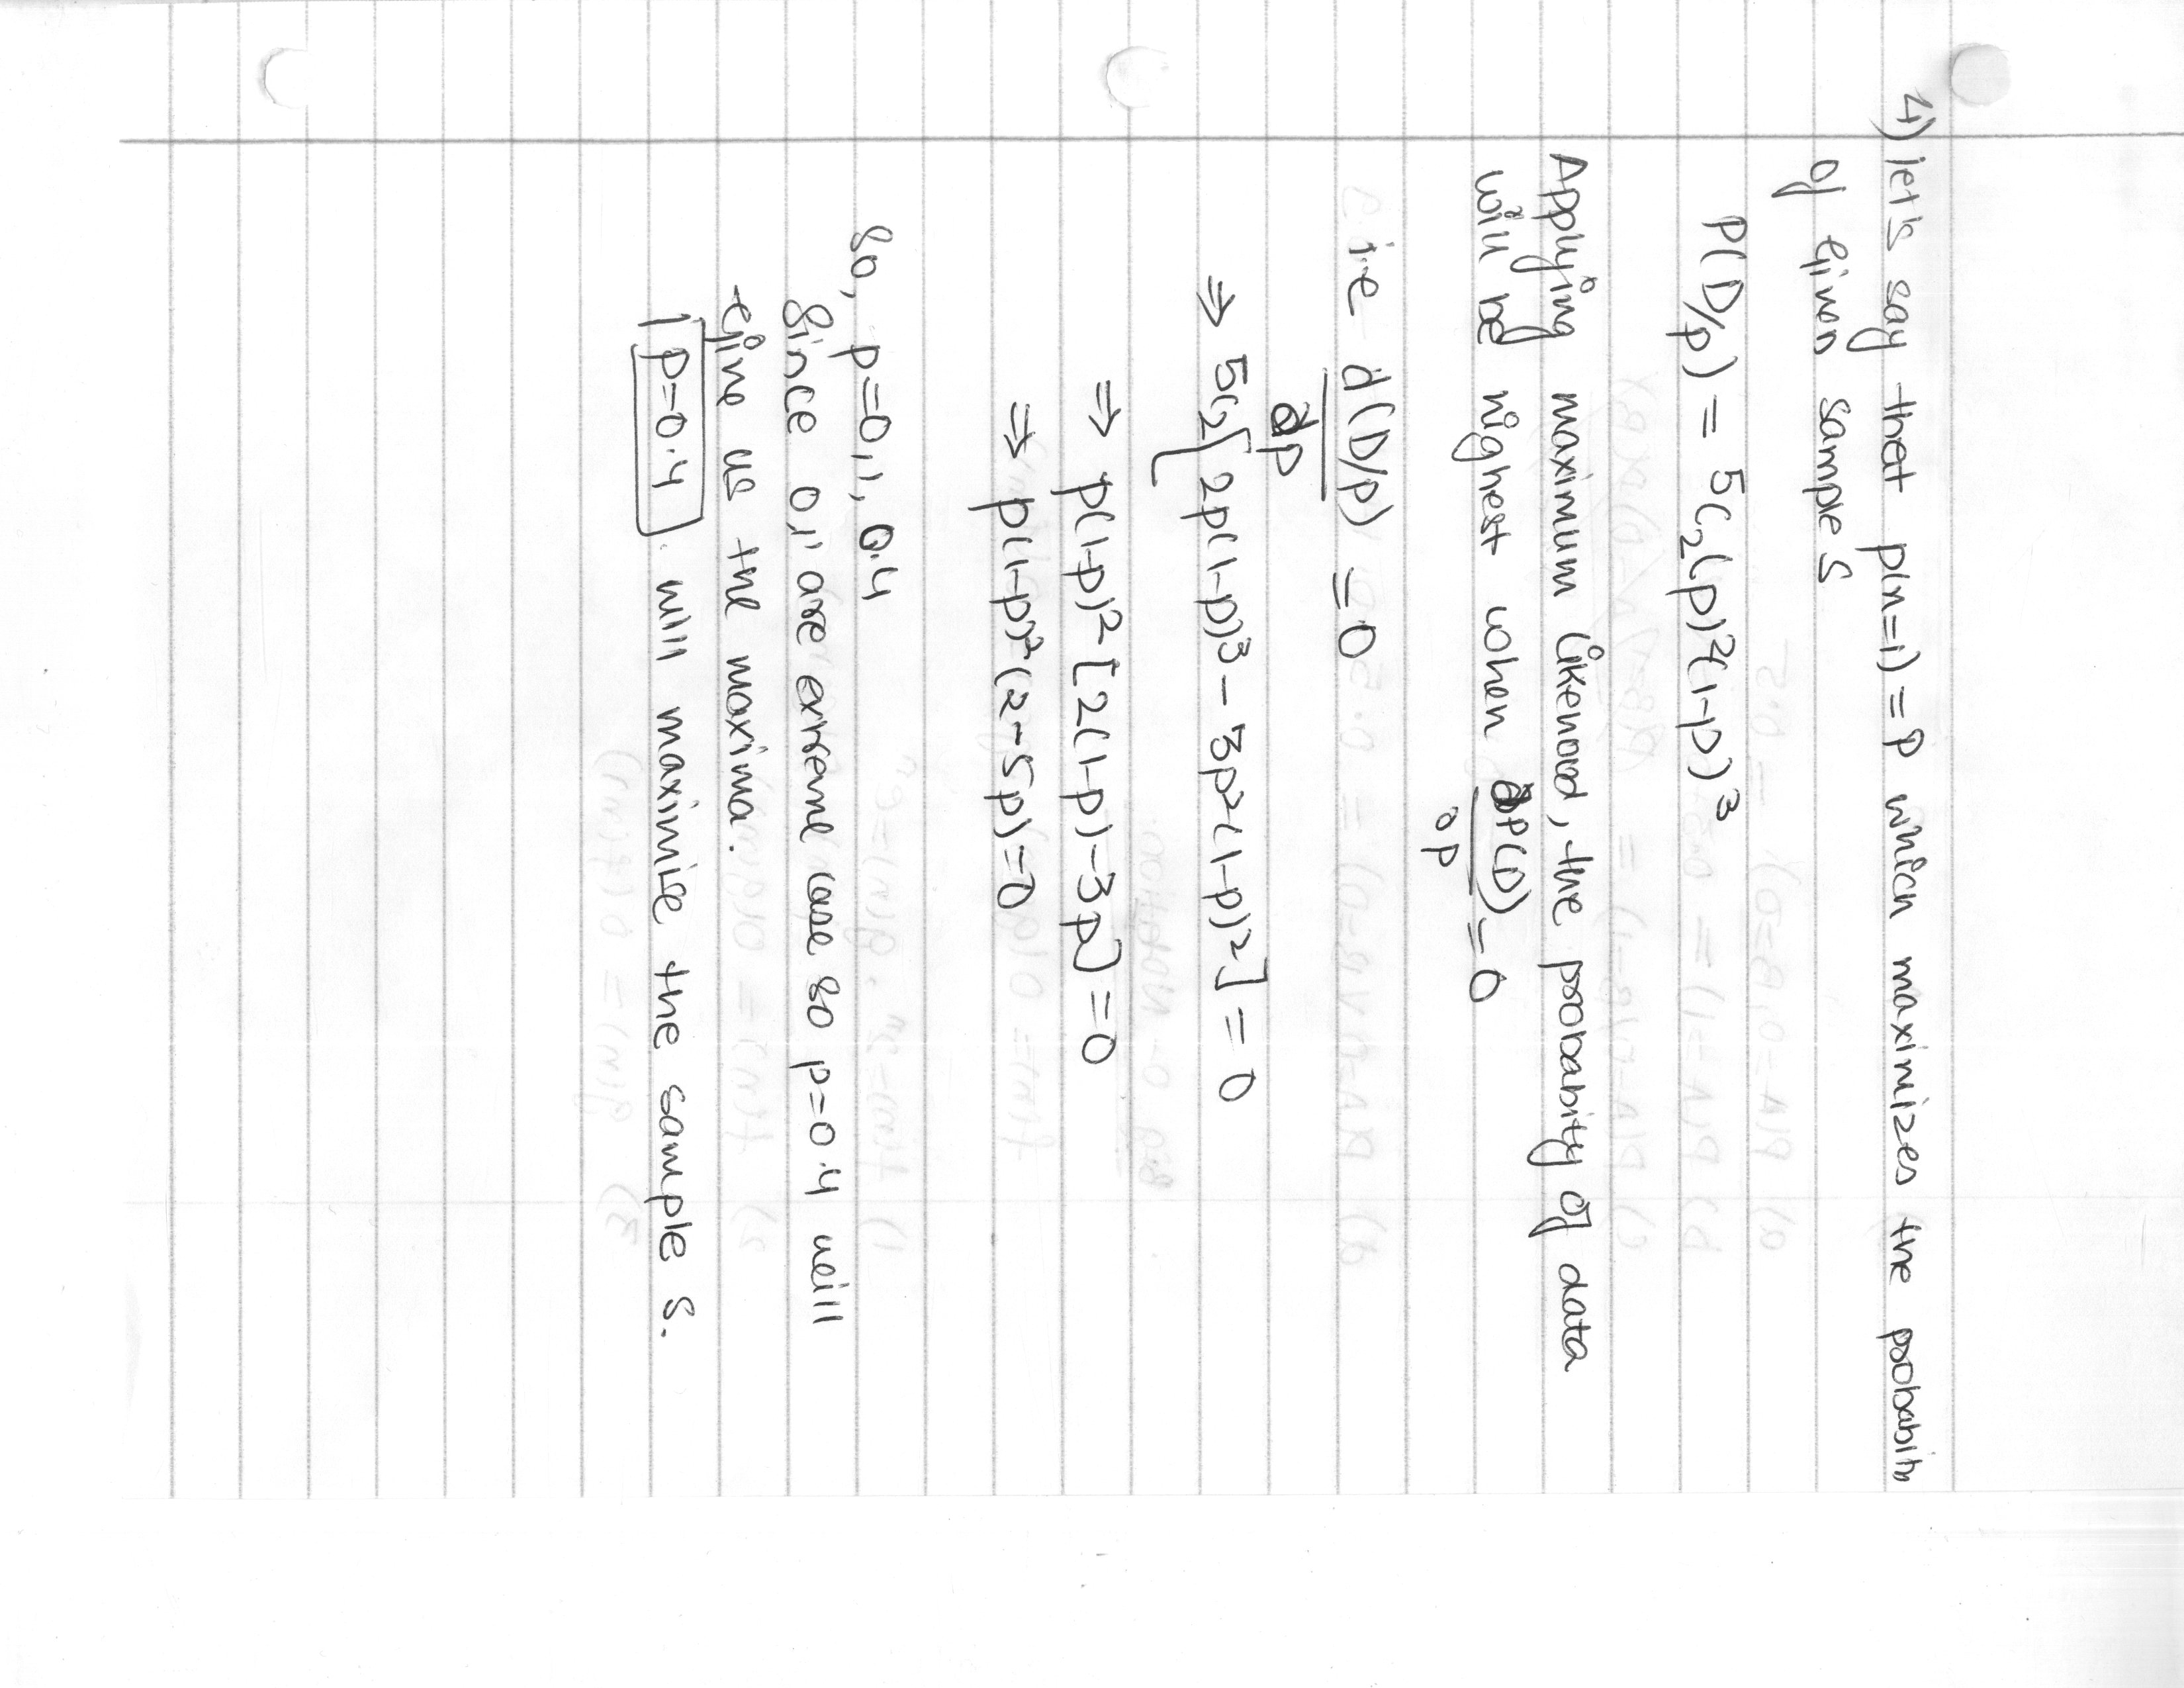 4) let's say that p(x=1) = P which maximizes the probabili
of given sample S
P(D/p) = 5C₂(p)²(1-p)³
Applying maximum likelihood, the probability of data
will be highest when ∂P(D)/∂p = 0
i.e d(D/p)/dp = 0
⇒ 5C₂[2p(1-p)³ - 3p²(1-p)²] = 0
⇒ p(1-p)²[2(1-p)-3p] = 0
⇒ p(1-p)²(2-5p)=0
So, p=0,1, 0.4
Since 0,1 are extreme case so p=0.4 will
give us the maxima.
p=0.4 will maximise the sample S.